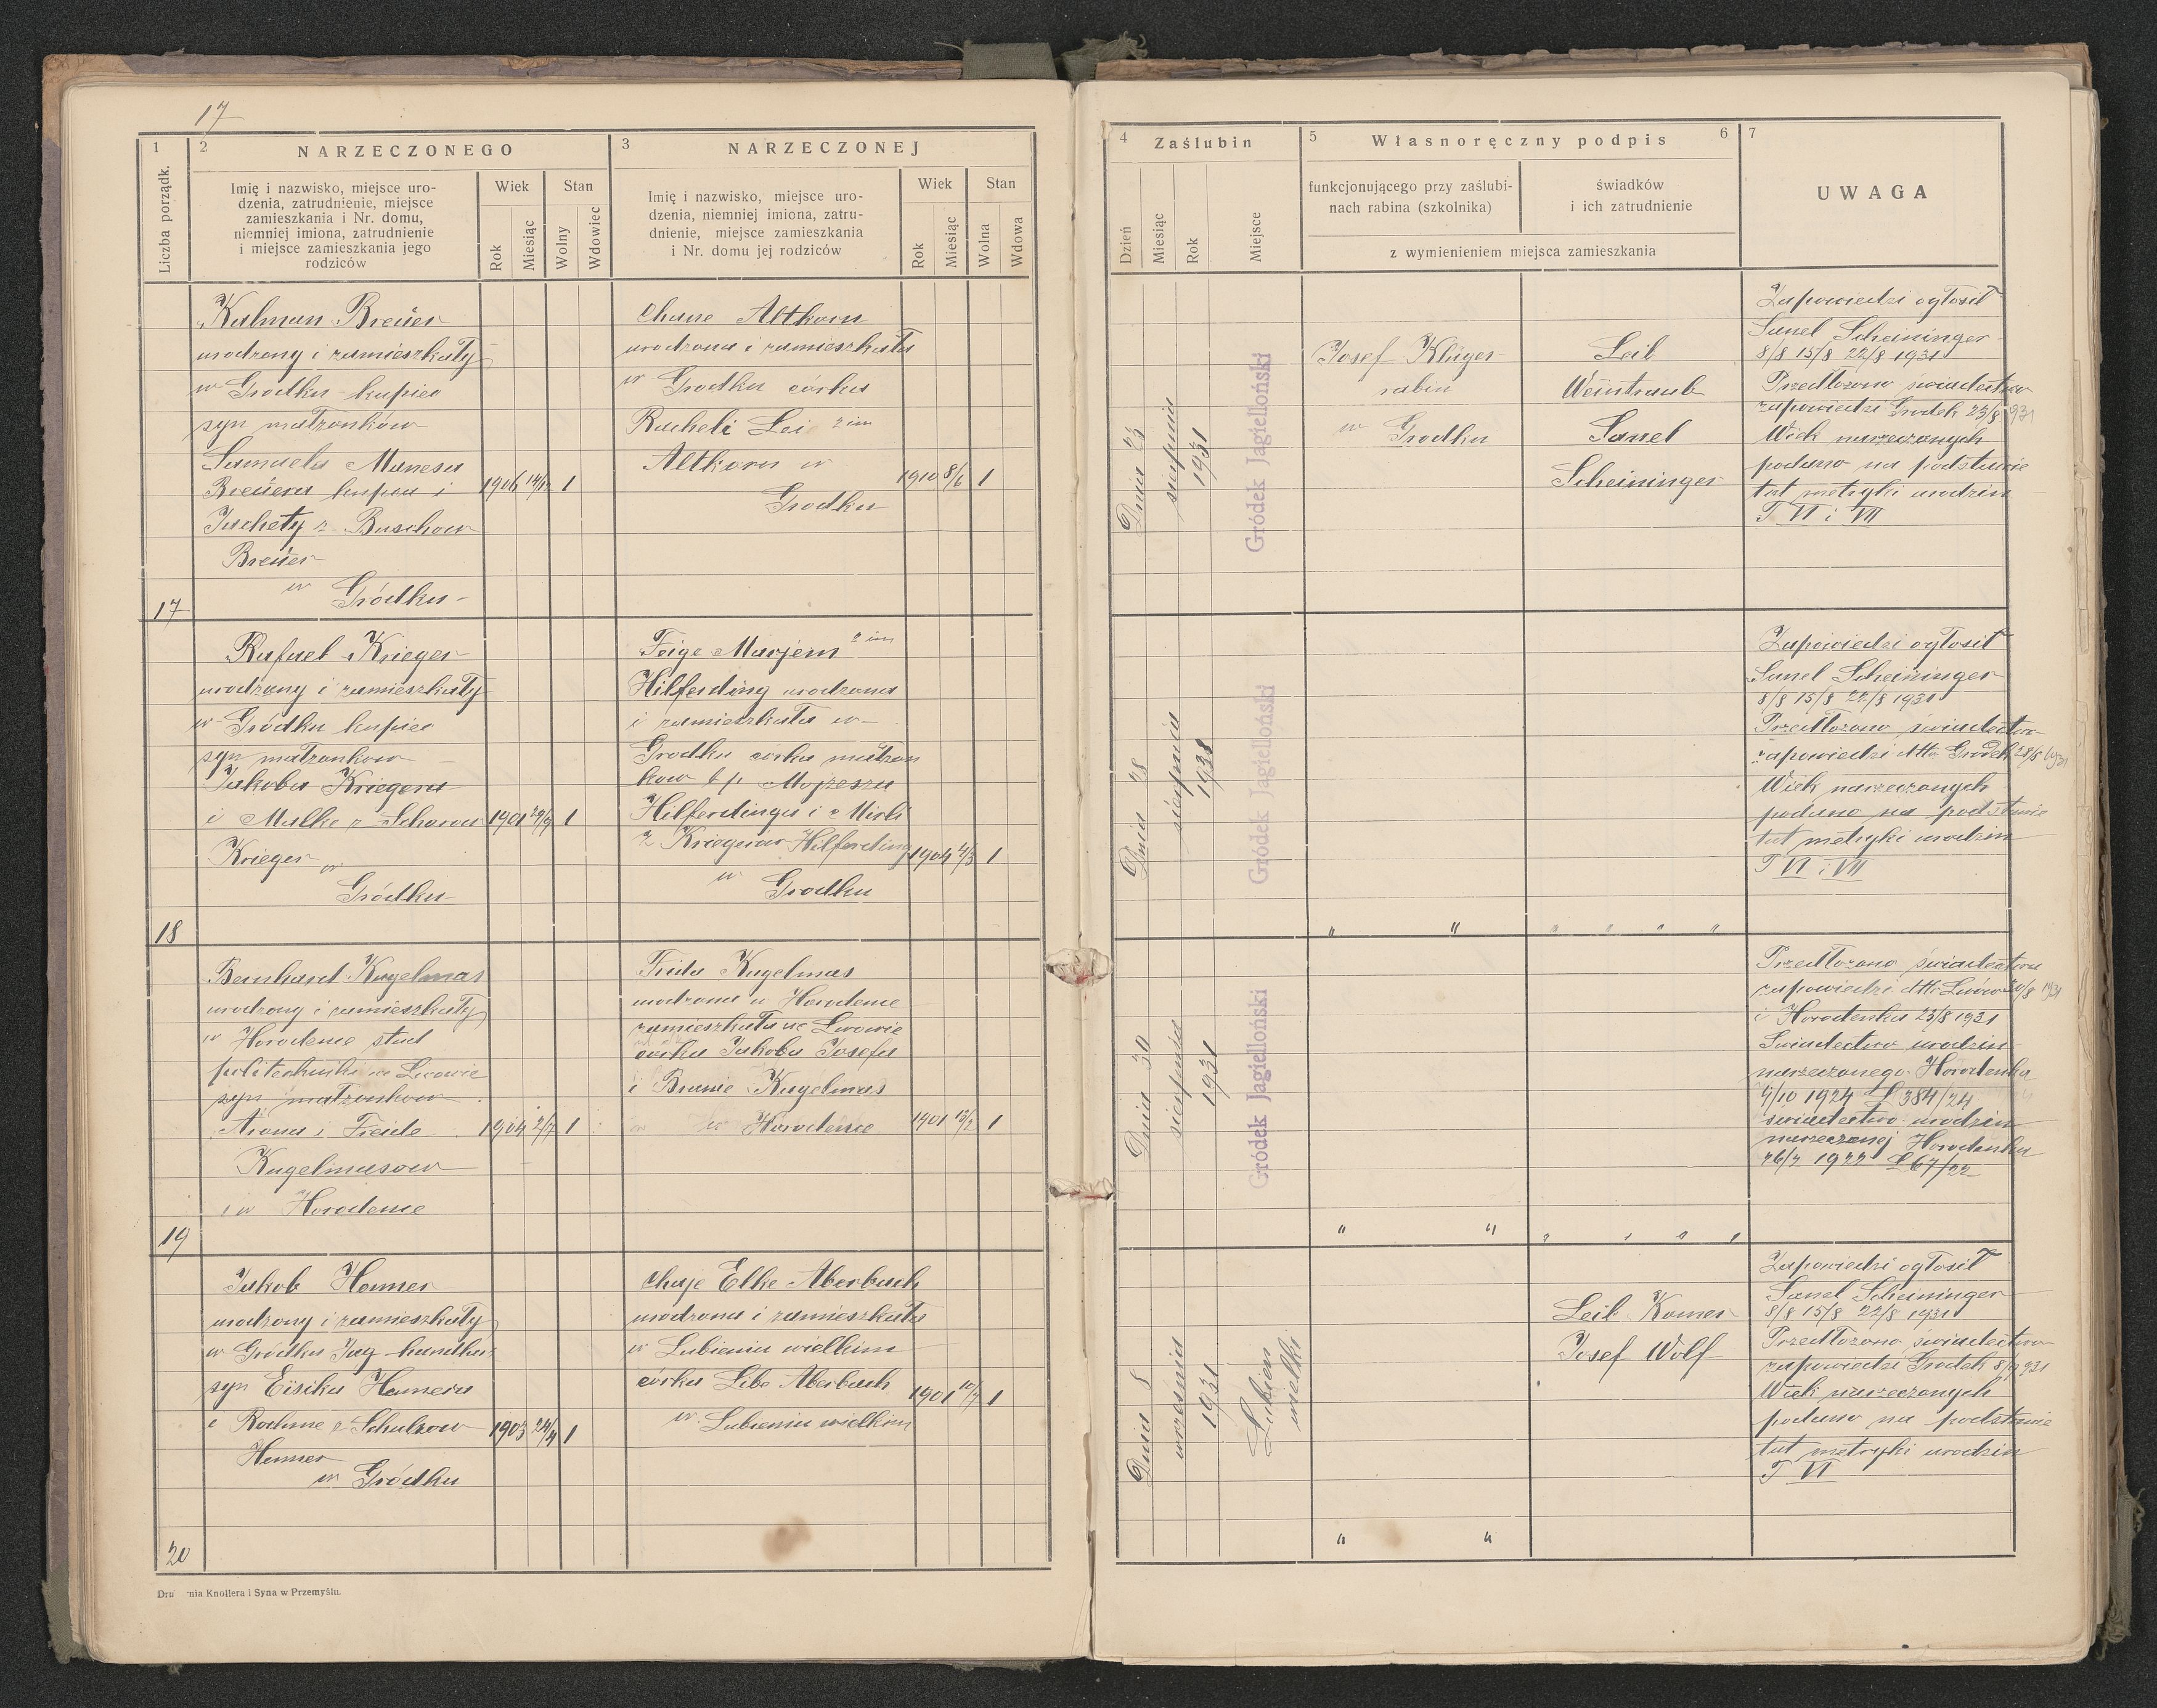 17
1
Liczba porządk.
2
NARZECZONEGO
Imię i nazwisko, miejsce uro-
dzenia, zatrudnienie, miejsce
zamieszkania i Nr. domu,
niemniej imiona, zatrudnienie
i miejsce zamieszkania jego
rodziców
Wiek
Rok
Miesiąc
Stan
Wolny
Wdowiec
3
NARZECZONEJ
Imię i nazwisko, miejsce uro-
dzenia, niemniej imiona, zatru-
dnienie, miejsce zamieszkania
i Nr. domu jej rodziców
Wiek
Rok
Miesiąc
Stan
Wolna
Wdowa
4
Zaślubin
Dzień
Miesiąc
Rok
Miejsce
5
Własnoręczny podpis
6
funkcjonującego przy zaślubi-
nach rabina (szkolnika)
świadków
i ich zatrudnienie
z wymienieniem miejsca zamieszkania
7
UWAGA
17
Kalman Breüer
urodzony i zamieszkały
w Gródku kupiec
syn małżonków
Samuela Manesa
Breüera kupca i
Jachety z Buschow
Breüer
w Gródku
1906
1
Chane Altkorn
urodzona i zamieszkała
w Grodku córka
Racheli Lei 2 im
Altkorn w
Grodku
1910 8/6 1
Dnia 23
sierpnia
1931
Gródek Jagielloński
Josef Klüger
rabin
w Grodku
Leib
Weintraub
Sanel
Scheininger
Zapowiedzi ogłosił
Sanel Scheininger
8/8 15/8 22/8 1931
Przedłożono świadectwo
zapowiedzi Grodek 23/8 931
Wiek narzeczonych
podano na podstawie
tut metryki urodzin
T VI i VII
18
Rafael Krieger
urodzony i zamieszkały
w Gródku kupiec
syn małzonkow
Jakoba Kriegera
i Malke z
Krieger w
Gródku
1901 29/9 1
Feige Marjem 2 im
Hilferding urodzona
i zamieszkała w
Grodku córka małzon
kow b p Mojzesza
Hilferdinga i Mirli
z Kriegerow Hilferding
w Grodku
1904 4/3 1
Dnia 28
sierpnia
1931
Gródek Jagielloński
" "
" " " "
Zapowiedzi ogłosił
Sanel Scheininger
8/8 15/8 22/8 1931
Przedłozono świadectwo
zapowiedzi dtto Gródek 28/8 1931
Wiek narzeczonych
podano na podstawie
tut metryki urodzin
T VI i VII
19
Bernhard Kugelmas
urodzony i zamieszkały
w Horodence stud
politechniki we Lwowie
syn małzonkow
Arona i Freide
Kugelmasow
w Horodence
1904 2/7 1
Frida Kugelmas
urodzona w Horodence
zamieszkała we Lwowie
córka Jakoba Josefa
i Branie Kugelmas
w Horodence
1901 1
Dnia 30
sierpnia
1931
Gródek Jagielloński
" "
" " " "
Przedłozono świadectwa
zapowiedzi dtto Lwów 30/8 1931
i Horodenka 23/8 1931
Swiadectwo urodzin
narzeczonego Horodenka
4/10 1924 L 384/24
swiadectwo urodzin
narzeczonej Horodenka
26/7 1922 L 67/22
20
Jakob Hamer
urodzony i zamieszkały
w Gródku Jag handlarz
syn Eisika Hamera
i Rachme z Schulzow
Hamer
w Gródku
1903 24/4 1
Chaje Elke Aberbach
urodzona i zamieszkała
w Lubieniu wielkim
córka Libe Aberbach
w Lubieniu wielkim
1901 10/7 1
Dnia 8
wrzesnia
1931
Lubien
wielki
" "
Leib Kamer
Josef Wolf
Zapowiedzi ogłosił
Sanel Scheininger
8/8 15/8 22/8 1931
Przedłozono świadectwo
zapowiedzi Grodek 8/9 931
Wiek narzeczonych
podano na podstawie
tut metryki urodzin
T VI
nia Knollera i Syna w Przemyślu.